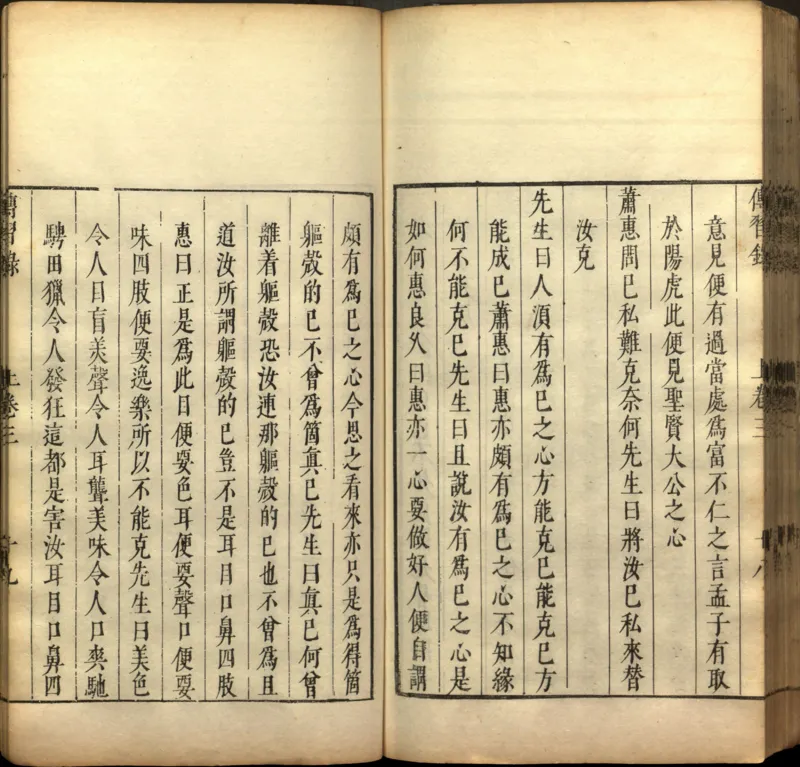 傳習錄 上卷三 十八
意見便有過當處為富不仁之言孟子有取
於陽虎此便見聖賢大公之心
蕭惠問已私難克奈何先生曰將汝已私來替
汝克
先生曰人須有為已之心方能克已能克已方
能成已蕭惠曰惠亦頗有為已之心不知緣
何不能克已先生曰且說汝有為已之心是
如何惠良久曰惠亦一心要做好人便自謂
頗有為已之心今思之看來亦只是為得箇
軀殼的已不曾為箇真已先生曰真已何曾
離着軀殼恐汝連那軀殼的已也不曾為且
道汝所謂軀殼的已豈不是耳目口鼻四肢
惠曰正是為此目便要色耳便要聲口便要
味四肢便要逸樂所以不能克先生曰美色
令人目盲美聲令人耳聾美味令人口爽馳
騁田獵令人發狂這都是害汝耳目口鼻四
傳習錄 上卷三 十九